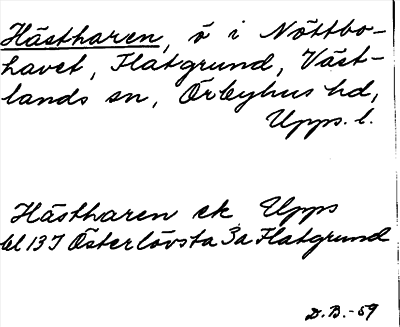 Hästharen, ö i Nöttbo-
havet, Flatgrund, Väst-
lands sn, Örbyhus hd,
Upps. l.
Hästharen ek Upps
bl 13 I Österlövsta 3a Flatgrund
D.B.-59